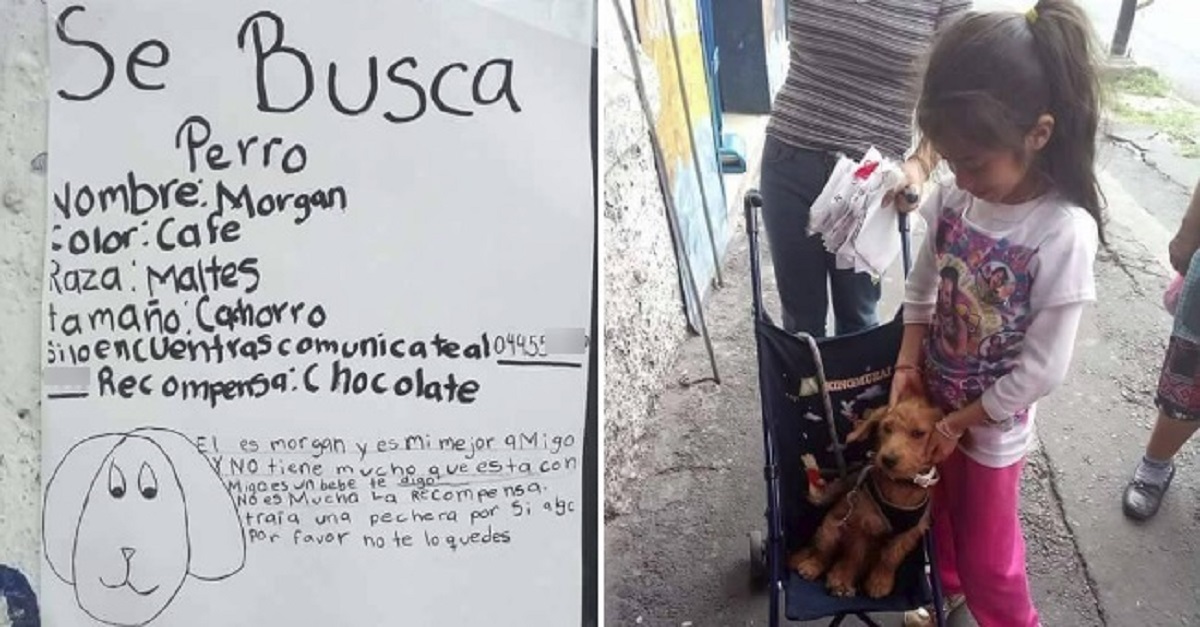 Se Busca
Perro
Nombre: Morgan
Color: Cafe
Raza: Maltes
tamaño: Cahorro
Si lo encuentras comunicate al 04455
Recompensa: Chocolate
El es morgan y es mi mejor aMigo
Y NO tiene mucho que esta con
Migo es un bebe te digo
NO es Mucha La Recompensa.
traía una pechera por Si algo
Por favor no te lo quedes